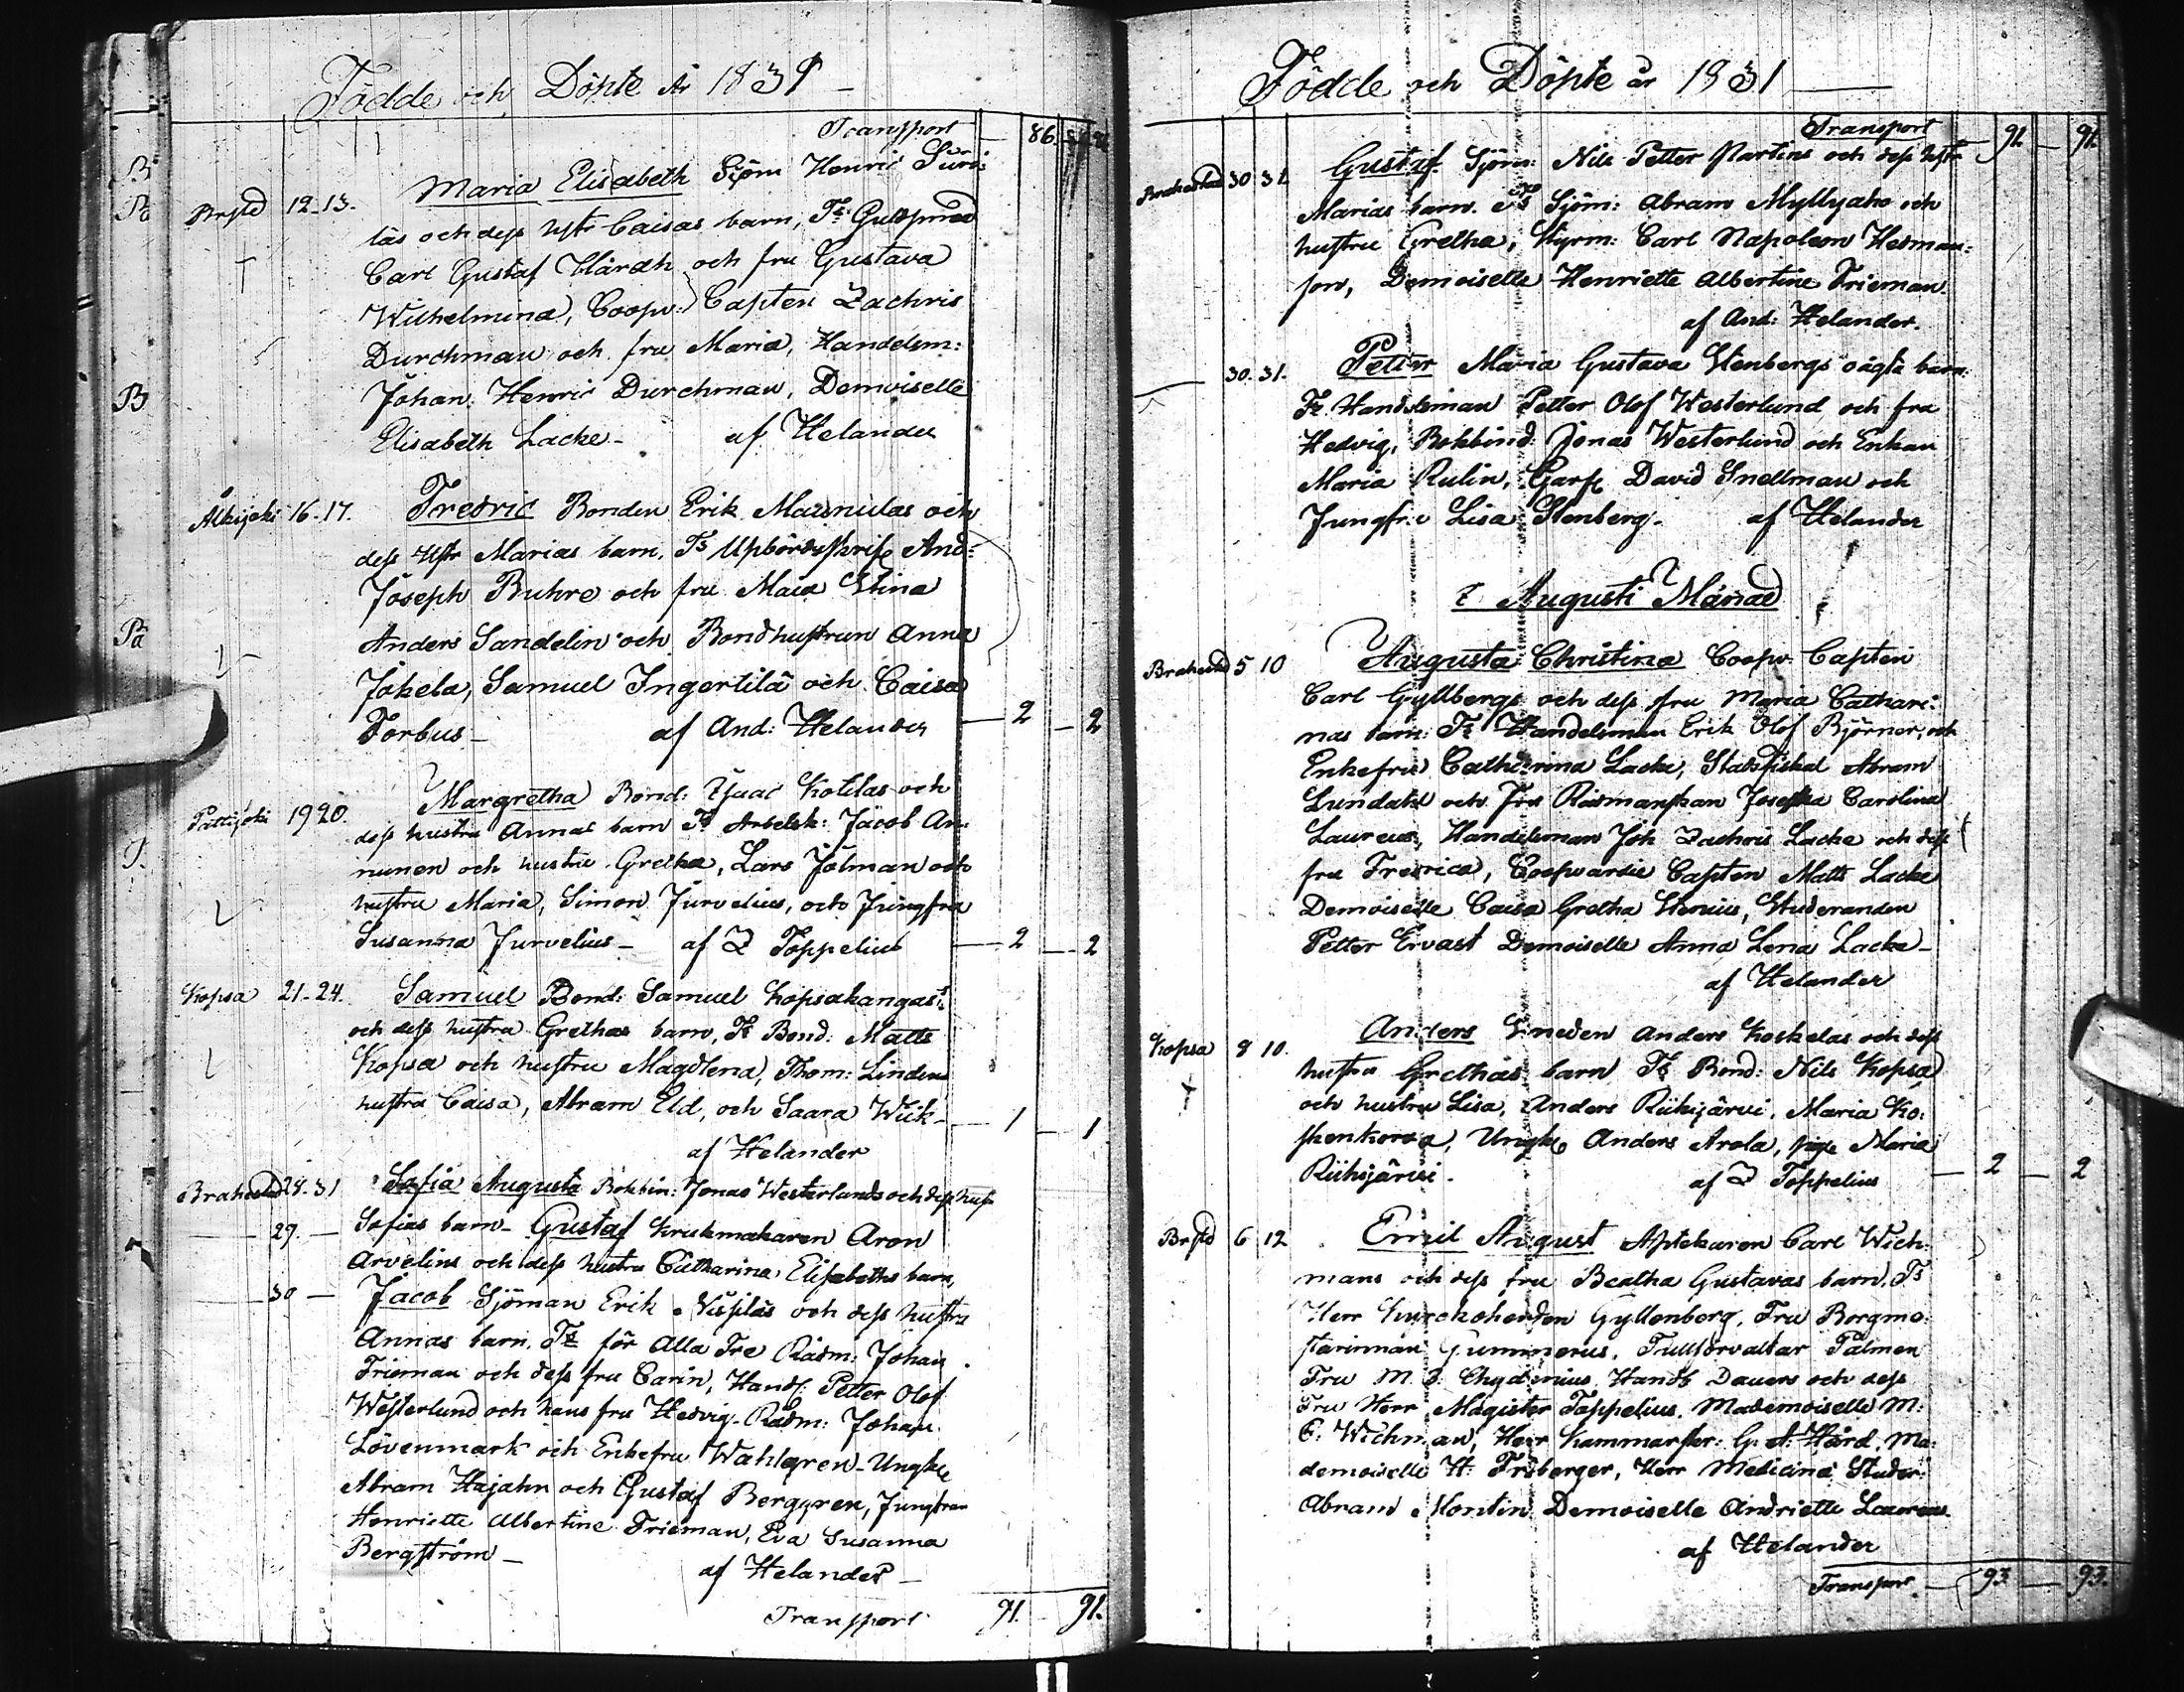 Födde och Döpte År 1831
Transport 86.
Brstd 12-13. Maria Elisabeth Sjöm Henric
läs och dess hstr Caisas barn, Fr
Carl Gustaf Hårdh och fru Gustava
Wilhelmina, Coopv: Capten Zachris
Durchman och fru Maria, Handelsm:
Johan Henric Durchman, Demoiselle
Elisabeth Lacke- af Helander
16-17. Fredric Bonden Erik och
dess hstr Marias barn, Fs Uppbördsskrif And:
Joseph Buhre och fru Maia Stina
Anders Sandelin och Bondhustrun Anna
Jokela, Samuel Ingertilä och Caisa
Forbus- af And: Helander — 2 — 2
Pattijoki 19 20. Margretha Bond: Isaac Kotilas och
dess hustru Annas barn Fs Arbetsk: Jacob An-
nunen och hustru Gretha, Lars Jolman och
hustru Maria, Simon Jurvelius, och Jungfru
Susanna Jurvelius- af Z Toppelius — 2 — 2
Kopsa 21-24. Samuel Bond: Samuel Kopsakangas
och dess hustru Grethas barn, Fs Bond: Matts
Kopsa och hustru Magdlena, Thom: Lindens
hustru Caisa, Abram Eld, och Saara Wiik- — 1 — 1
af Helander
Brahestad 28. 31 Sofia Augusta Bokbin: Jonas Westerlunds och dess hust
— 29. — Sofias barn- Gustaf Krukmakaren Aron
Arvelius och dess hustru Catharina Elisabeths barn,
— 30 — Jacob Sjöman Erik och dess hustru
Annas barn. Fs för Alla Tre Rådm: Johan
Frieman och dess fru Carin, Handl: Petter Olof
Westerlund och hans fru Hedvig- Rådm: Johan
Lövenmark och Enkefru Wahlgren- Ungkl
Abram Hajahn och Gustaf Berggren, Jungfrau
Henriette Albertine Frieman, Eva Susanna
Bergström-
af Helander-
Transport 91. 91.
Födde och Döpte år 1831
Transport 91. — 91.
Brahestad 30 31. Gustaf Sjöm: Nils Petter Martins och dess hstr
Marias barn. Fs Sjöm: Abram Myllyaho och
hustru Gretha, Styrm: Carl Napoleon Hedman-
son, Demoiselle Henriette Albertine Frieman.
af And: Helander.
— 30. 31. Petter Maria Gustava Stenbergs oägta barn.
Fr. Handelsman Petter Olof Westerlund och fru
Hedvig, Bokbind: Jonas Westerlund och Enkan
Maria Rulin, Garfv David Snellman och
Jungfru Lisa Stenberg- af Helander
Augusti Månad
Brahestad 5 10 Augusta Christina Coopv: Capten
Carl Gyllbergs och dess fru Maria Cathari-
nas barn: Fs Handelsman Erik Olof Björner, och
Enkefru Catharina Lacke, Stadsfiskal Abram
Lundahl och Fru Rådmanskan Josepha Carolina
Laureus, Handelsman Joh Zachris Lacke och dess
fru Fredrica, Coopvardie Capten Matts Lacke
Demoiselle Caisa Gretha Stenius, Studeranden
Petter Ervast Demoiselle Anna Lena Lacke-
af Helander
Kopsa 8 10. Anders Smeden Anders Koskelas och dess
hustru Grethas barn Fs Bond: Nils Kopsa
och hustru Lisa, Anders Riihijärvi, Maria Ko-
skenkorva, Ungk Anders Arola, pige Maria
Riihijärvi. af Z Toppelius — 2 — 2
Brstd 6 12 Emil August Aptekaren Carl Wich-
mans och dess fru Beatha Gustavas barn. Fs
Herr Kyrckoherden Gyllenberg, Fru Borgmä-
starinnan Gummerus, Tullförvaltar Palmen
Fru M. Chydenius Handl Dauers och dess
Fru Herr Magister Toppelius. Mademoiselle M:
C: Wichman, Herr Kammarskr: G. A. Hård, Ma-
demoiselle H: Friberger, Herr Medicine Studer:
Abram Montin Demoiselle Andriette Laureus.
af Helander
Transport — 93 — 93.